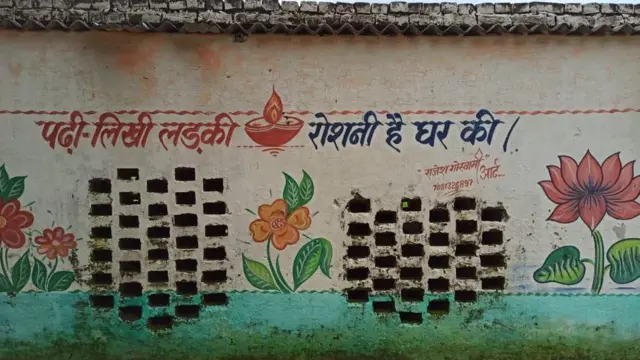 पढ़ी-लिखी लड़की रोशनी है घर की।
राजेश गोस्वामी
आर्ट